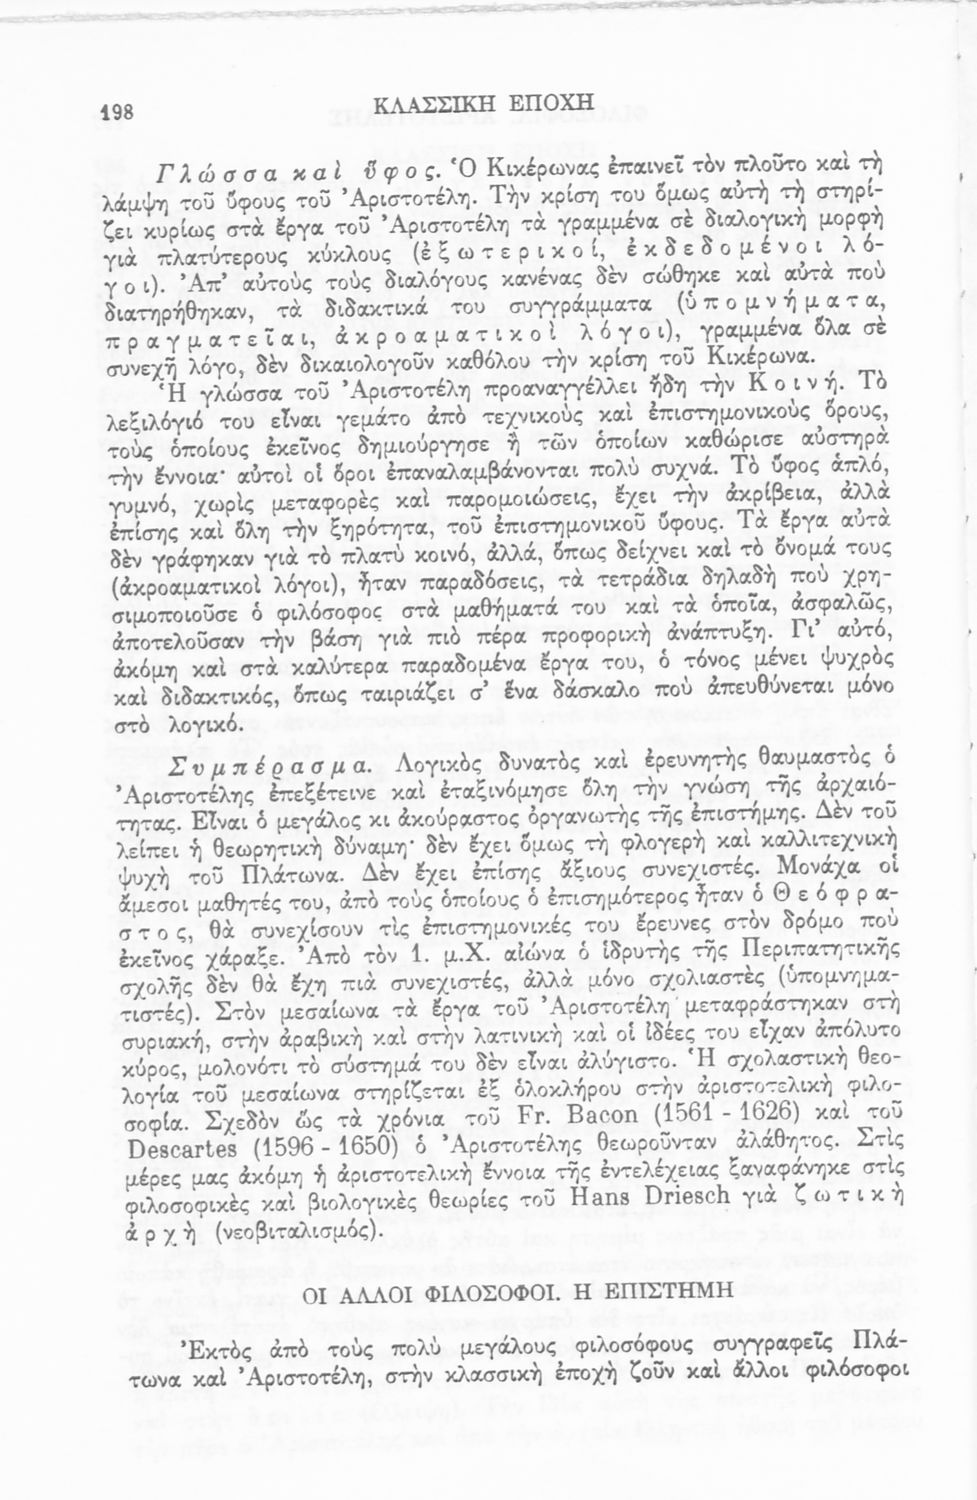 198
ΚΛΑΣΣΙΚΗ ΕΠΟΧΗ
Γλώσσα καὶ ὕφος. Ὁ Κικέρωνας ἐπαινεῖ τὸν πλοῦτο καὶ τὴ
λάμψη τοῦ ὕφους τοῦ Ἀριστοτέλη. Τὴν κρίση του ὅμως αὐτὴ τὴ στηρί-
ζει κυρίως στὰ ἔργα τοῦ Ἀριστοτέλη τὰ γραμμένα σὲ διαλογικὴ μορφὴ
γιὰ πλατύτερους κύκλους (ἐξωτερικοί, ἐκδεδομένοι λό-
γοι). Ἀπ’ αὐτοὺς τοὺς διαλόγους κανένας δὲν σώθηκε καὶ αὐτὰ ποὺ
διατηρήθηκαν, τὰ διδακτικά του συγγράμματα (ὑπομνήματα,
πραγματεῖαι, ἀκροαματικοὶ λόγοι), γραμμένα ὅλα σὲ
συνεχῆ λόγο, δὲν δικαιολογοῦν καθόλου τὴν κρίση τοῦ Κικέρωνα.
Ἡ γλώσσα τοῦ Ἀριστοτέλη προαναγγέλλει ἤδη τὴν Κοινή. Τὸ
λεξιλόγιό του εἶναι γεμάτο ἀπὸ τεχνικοὺς καὶ ἐπιστημονικοὺς ὅρους,
τοὺς ὁποίους ἐκεῖνος δημιούργησε ἢ τῶν ὁποίων καθώρισε αὐστηρὰ
τὴν ἔννοια· αὐτοὶ οἱ ὅροι ἐπαναλαμβάνονται πολὺ συχνά. Τὸ ὕφος ἁπλό,
γυμνό, χωρὶς μεταφορὲς καὶ παρομοιώσεις, ἔχει τὴν ἀκρίβεια, ἀλλὰ
ἐπίσης καὶ ὅλη τὴν ξηρότητα, τοῦ ἐπιστημονικοῦ ὕφους. Τὰ ἔργα αὐτὰ
δὲν γράφηκαν γιὰ τὸ πλατὺ κοινό, ἀλλά, ὅπως δείχνει καὶ τὸ ὄνομά τους
(ἀκροαματικοὶ λόγοι), ἦταν παραδόσεις, τὰ τετράδια δηλαδὴ ποὺ χρη-
σιμοποιοῦσε ὁ φιλόσοφος στὰ μαθήματά του καὶ τὰ ὁποῖα, ἀσφαλῶς,
ἀποτελοῦσαν τὴν βάση γιὰ πιὸ πέρα προφορικὴ ἀνάπτυξη. Γι’ αὐτό,
ἀκόμη καὶ στὰ καλύτερα παραδομένα ἔργα του, ὁ τόνος μένει ψυχρὸς
καὶ διδακτικός, ὅπως ταιριάζει σ’ ἕνα δάσκαλο ποὺ ἀπευθύνεται μόνο
στὸ λογικό.
Συμπέρασμα. Λογικὸς δυνατὸς καὶ ἐρευνητὴς θαυμαστὸς ὁ
Ἀριστοτέλης ἐπεξέτεινε καὶ ἐταξινόμησε ὅλη τὴν γνώση τῆς ἀρχαιό-
τητας. Εἶναι ὁ μεγάλος κι ἀκούραστος ὀργανωτὴς τῆς ἐπιστήμης. Δὲν τοῦ
λείπει ἡ θεωρητικὴ δύναμη· δὲν ἔχει ὅμως τὴ φλογερὴ καὶ καλλιτεχνικὴ
ψυχὴ τοῦ Πλάτωνα. Δὲν ἔχει ἐπίσης ἄξιους συνεχιστές. Μονάχα οἱ
ἄμεσοι μαθητές του, ἀπὸ τοὺς ὁποίους ὁ ἐπισημότερος ἦταν ὁ Θεόφρα-
στος, θὰ συνεχίσουν τὶς ἐπιστημονικές του ἔρευνες στὸν δρόμο ποὺ
ἐκεῖνος χάραξε. Ἀπὸ τὸν 1. μ.Χ. αἰώνα ὁ ἱδρυτὴς τῆς Περιπατητικῆς
σχολῆς δὲν θὰ ἔχη πιὰ συνεχιστές, ἀλλὰ μόνο σχολιαστὲς (ὑπομνημα-
τιστές). Στὸν μεσαίωνα τὰ ἔργα τοῦ Ἀριστοτέλη μεταφράστηκαν στὴ
συριακή, στὴν ἀραβικὴ καὶ στὴν λατινικὴ καὶ οἱ ἰδέες του εἶχαν ἀπόλυτο
κύρος, μολονότι τὸ σύστημά του δὲν εἶναι ἀλύγιστο. Ἡ σχολαστικὴ θεο-
λογία τοῦ μεσαίωνα στηρίζεται ἐξ ὁλοκλήρου στὴν ἀριστοτελικὴ φιλο-
σοφία. Σχεδὸν ὣς τὰ χρόνια τοῦ Fr. Bacon (1561 - 1626) καὶ τοῦ
Descartes (1596 - 1650) ὁ Ἀριστοτέλης θεωροῦνταν ἀλάθητος. Στὶς
μέρες μας ἀκόμη ἡ ἀριστοτελικὴ ἔννοια τῆς ἐντελέχειας ξαναφάνηκε στὶς
φιλοσοφικὲς καὶ βιολογικὲς θεωρίες τοῦ Hans Driesch γιὰ ζωτικὴ
ἀρχὴ (νεοβιταλισμός).
ΟΙ ΑΛΛΟΙ ΦΙΛΟΣΟΦΟΙ. Η ΕΠΙΣΤΗΜΗ
Ἐκτὸς ἀπὸ τοὺς πολὺ μεγάλους φιλοσόφους συγγραφεῖς Πλά-
τωνα καὶ Ἀριστοτέλη, στὴν κλασσικὴ ἐποχὴ ζοῦν καὶ ἄλλοι φιλόσοφοι